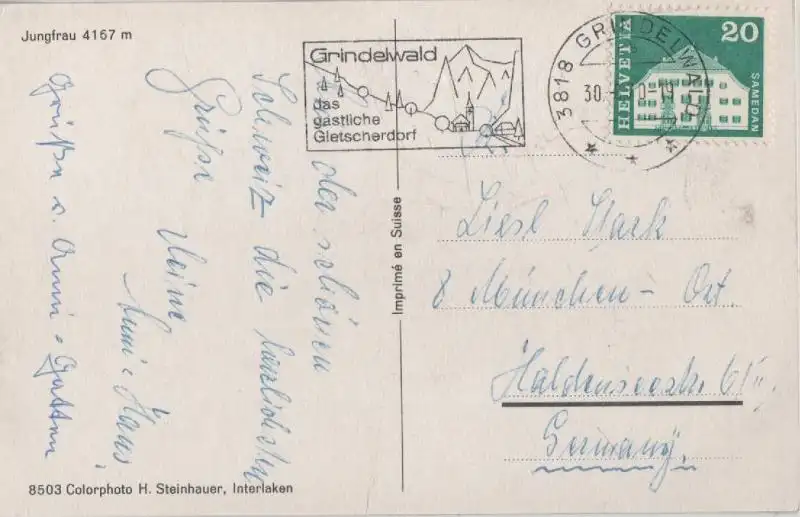 Jungfrau 4167 m
Grindelwald
das
gastliche
Gletscherdorf
3818 GRINDELWALD
30.
HELVETIA
20
SAMEDAN
der schönen
Schweiz die herzlichsten
Grüße
Anni + Hans
Grüße v. Anni + Gatten
Imprimé en Suisse
Liesl Stark
8 München - Ost.
Haldenseestr. 6/II
Germany.
8503 Colorphoto H. Steinhauer, Interlaken